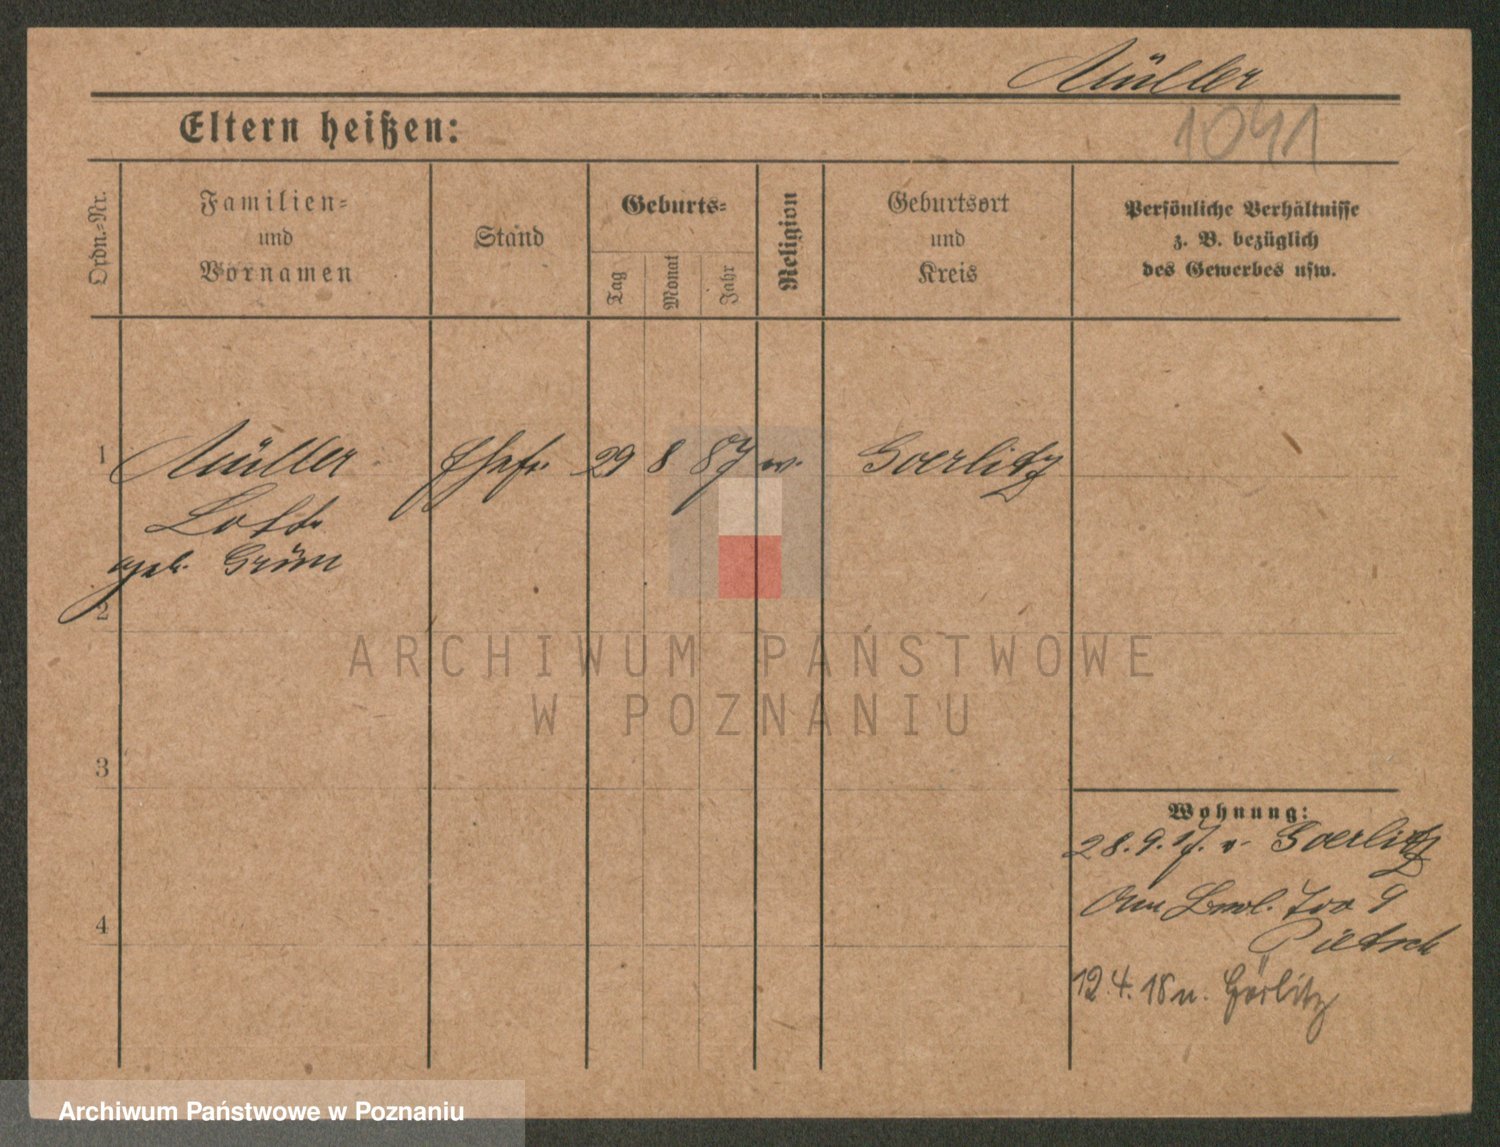 Müller
Eltern heißen:
1041
Ordn.-Nr.
Familien-
und
Vornamen
Stand
Geburts-
Tag
Monat
Jahr
Religion
Geburtsort
und
Kreis
Persönliche Verhältnisse
z. B. bezüglich
des Gewerbes usw.
1 Müller Ehefr. 29 8 87 Goerlitz
Lotte
geb. Grün
2
ARCHIWUM PAŃSTWOWE
W POZNANIU
3
Wohnung:
28.9.17. v. Goerlitz
Am 9
Pietsch
4
12.4.18 n. Görlitz
Archiwum Państwowe w Poznaniu